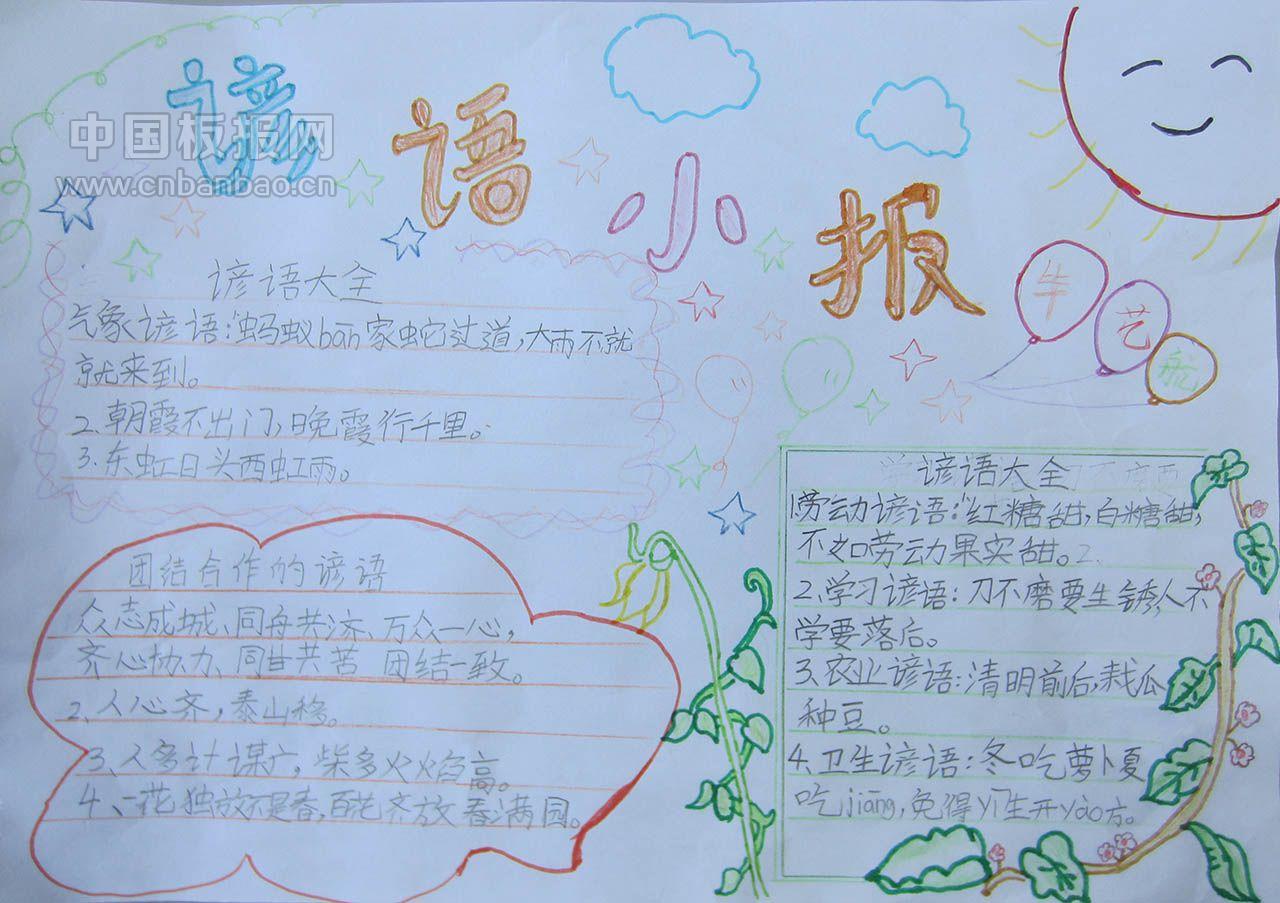 谚语小报
中国板报网
www.cnbanbao.cn
牛艺航
谚语大全
气象谚语:“蚂蚁bān家蛇过道,大雨不就
就来到。
2.朝霞不出门,晚霞行千里。
3.东虹日头西虹雨。
团结合作的谚语
众志成城、同舟共济、万众一心,
齐心协力、同甘共苦 团结一致。
2、人心齐,泰山移。
3、人多计谋广,柴多火焰高。
4、一花独放不是春,百花齐放春满园。
谚语大全
1.劳动谚语:“红糖甜,白糖甜,
不如劳动果实甜。2.
2、学习谚语:刀不磨要生锈,人不
学要落后。
3、农业谚语:清明前后,栽瓜
种豆。
4、卫生谚语:冬吃萝卜夏
吃jiāng,免得yī生开yào方。